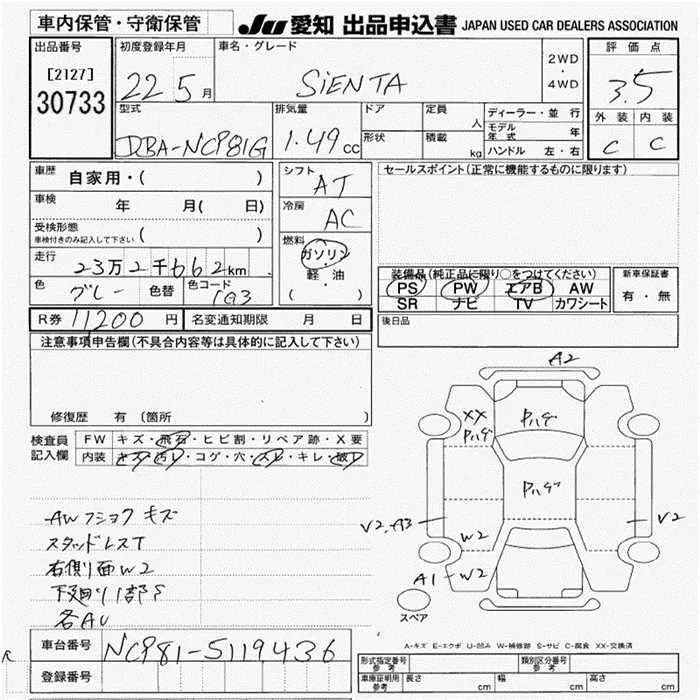 車内保管・守衛保管 JU 愛知 出品申込書 JAPAN USED CAR DEALERS ASSOCIATION
出品番号 初度登録年月 車名・グレード 2WD・4WD 評価点
[2127] 22 5月 SiENTA 3.5
30733 外装 内装
型式 排気量 ドア 定員 人 ディーラー・並行
DBA-NCP81G 1.49cc 形状 積載 kg モデル年式 年 C C
ハンドル 左・右
車歴 自家用・( ) シフト AT セールスポイント(正常に機能するものに限ります)
車検 年 月( 日) 冷房 AC
受検形態 車検付きのみ記入して下さい ( )
燃料 ガソリン・軽油 ( )
走行 23万2千662km 装備品(純正品に限り○をつけてください) 新車保証書
色 グレー 色替 色コード 1G3 PS PW エアB AW 有・無
SR ナビ TV カワシート
R券 11200円 名変通知期限 月 日 後日品
注意事項申告欄(不具合内容等は具体的に記入して下さい)
修復歴 有(箇所
検査員記入欄 FW キズ・飛石・ヒビ割・リペア跡・X要
内装 キズ・汚レ・コゲ・穴・スレ・キレ・破レ
A2
XX Pハゲ Pハゲ
Pハゲ
V2,A3 W2 V2
A1 W2
スペア
AWフショク キズ
スタッドレスT
右側面W2
下廻り1部S
各AU
A-キズ E-エクボ U-凹み W-補修跡 S-サビ C-腐食 XX-交換済
車台番号 NCP81-5119436
R 登録番号
形式指定番号 参考 類別区分番号 参考
車庫証明用 参考 長さ cm 幅 cm 高さ cm